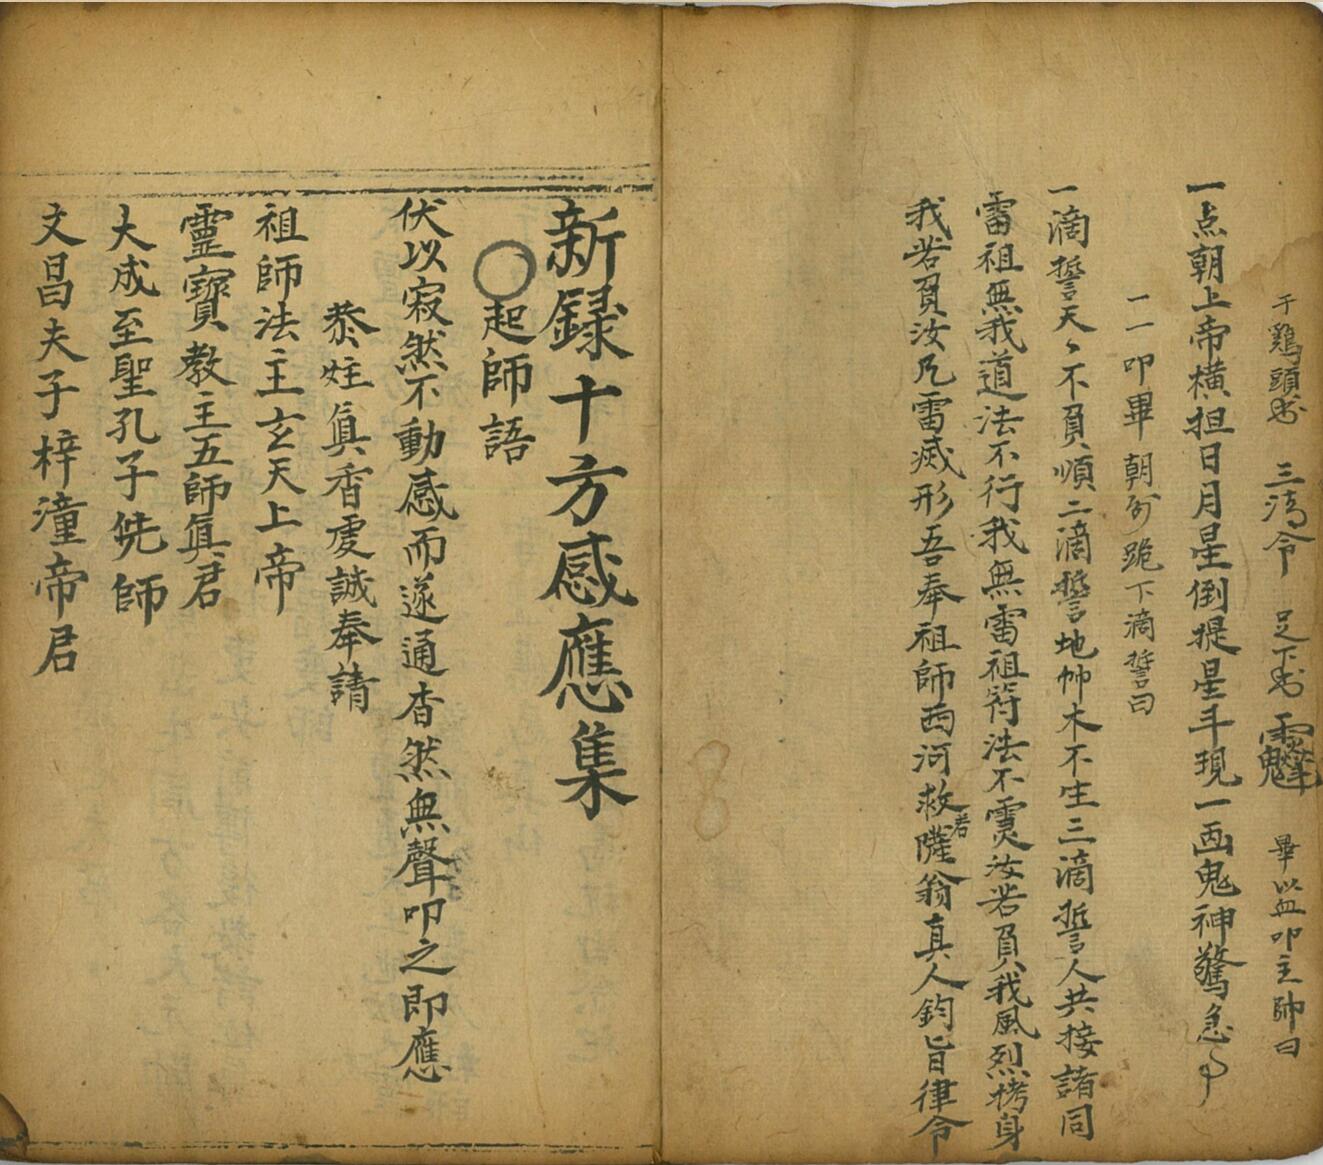 于鷄頭書 三清令 足下書 畢以血叩主帥曰
一点朝上帝橫担日月星倒提星斗現一画鬼神驚急
一一叩畢朝外跪下滴誓曰
一滴誓天〻不負順二滴誓地艸木不生三滴誓人共接諸同
雷祖無我道法不行我無雷祖符法不灵汝若負我風烈拷身
我若負汝凡雷滅形吾奉祖師西河救薩翁真人鈞旨律令
若
新録十方感應集
○起師語
伏以寂然不動感而遂通杳然無聲叩之即應
恭炷真香虔誠奉請
祖師法主玄天上帝
靈寶教主五師真君
大成至聖孔子先師
文昌夫子梓潼帝君